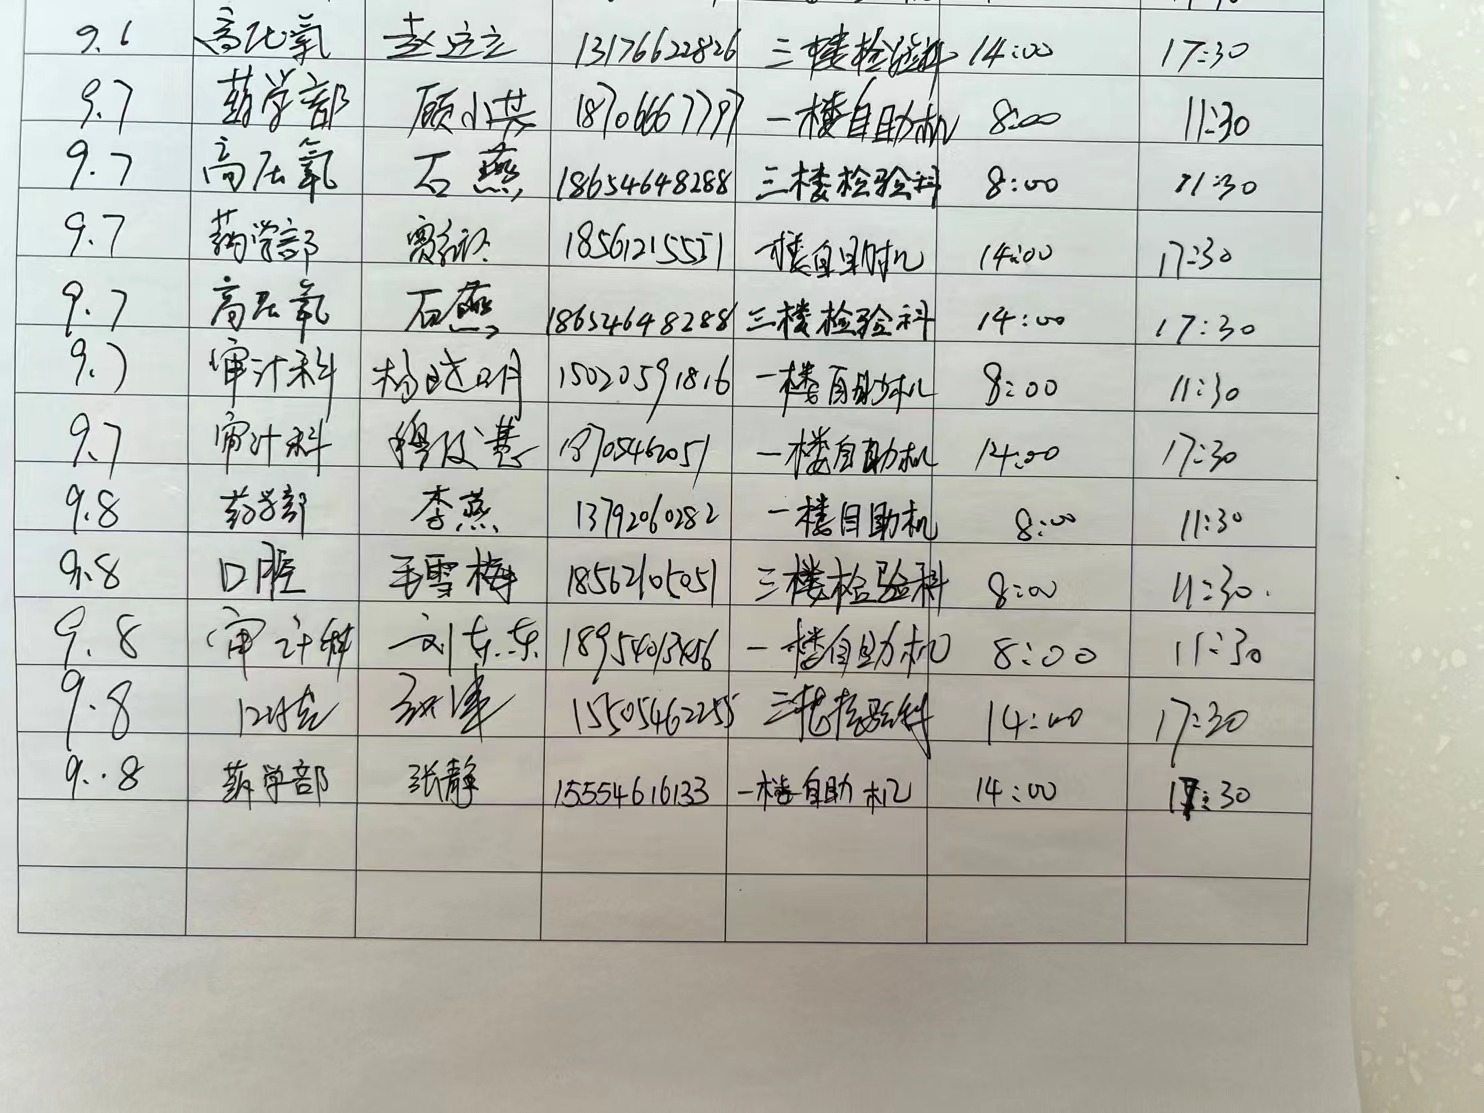 9.6 高压氧 赵立立 13176622826 三楼检验科 14:00 17:30
9.7 药学部 顾小芸 18706667797 一楼自助机 8:00 11:30
9.7 高压氧 石燕 18654648288 三楼检验科 8:00 11:30
9.7 药学部 18561215551 一楼自助机 14:00 17:30
9.7 高压氧 石燕 18654648288 三楼检验科 14:00 17:30
9.7 审计科 杨晓明 15020591816 一楼自助机 8:00 11:30
9.7 审计科 18705462051 一楼自助机 14:00 17:30
9.8 药学部 李燕 13792060282 一楼自助机 8:00 11:30
9.8 口腔 王雪梅 18562105051 三楼检验科 8:00 11:30.
9.8 审计科 刘东东 一楼自助机 8:00 11:30
9.8 15505462255 三楼检验科 14:00 17:30
9.8 药学部 张静 15554616133 一楼自助机 14:00 17:30